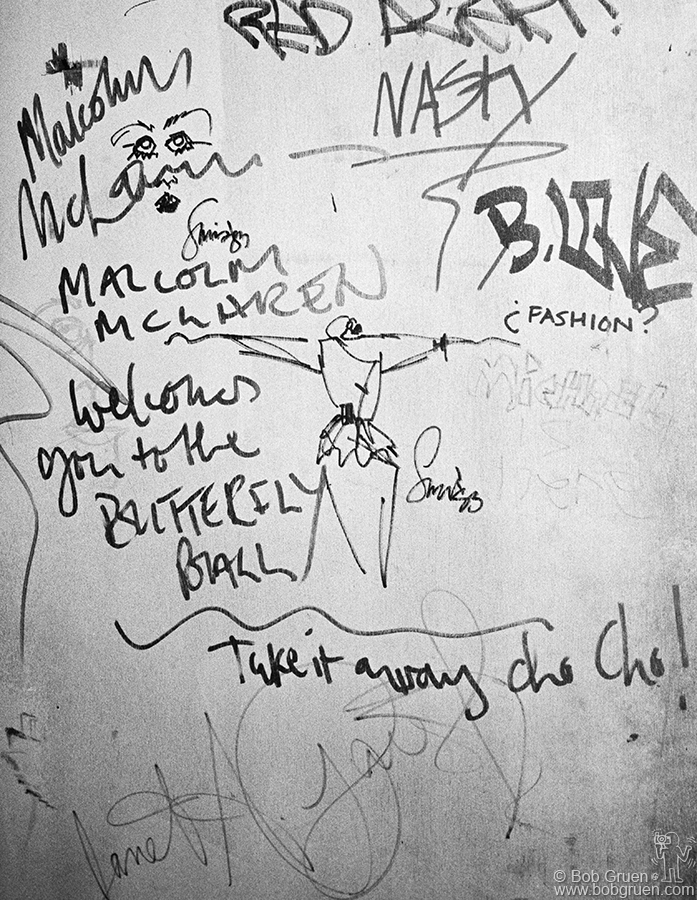 NASTY
Malcolm
McLaren
B. LOVE
MALCOLM
MCLAREN
¿FASHION?
Michael
Welcomes
you to the
BUTTERFLY
BALL
Take it away cha Cha!
Janet
© Bob Gruen
www.bobgruen.com